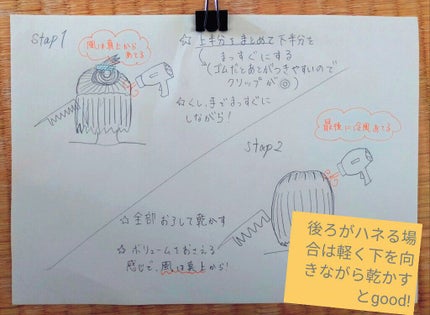 stap1
風は真上から
あてる
☆ 上半分をまとめて下半分を
まっすぐにする
(ゴムだとあとがつきやすいので
クリップが◎)
☆くし、手でまっすぐに
しながら!
stap2
最後に冷風あてる
☆全部おろして乾かす
☆ボリュームをおさえる
感じで、風は真上から!
後ろがハネる場
合は軽く下を向
きながら乾かす
とgood!